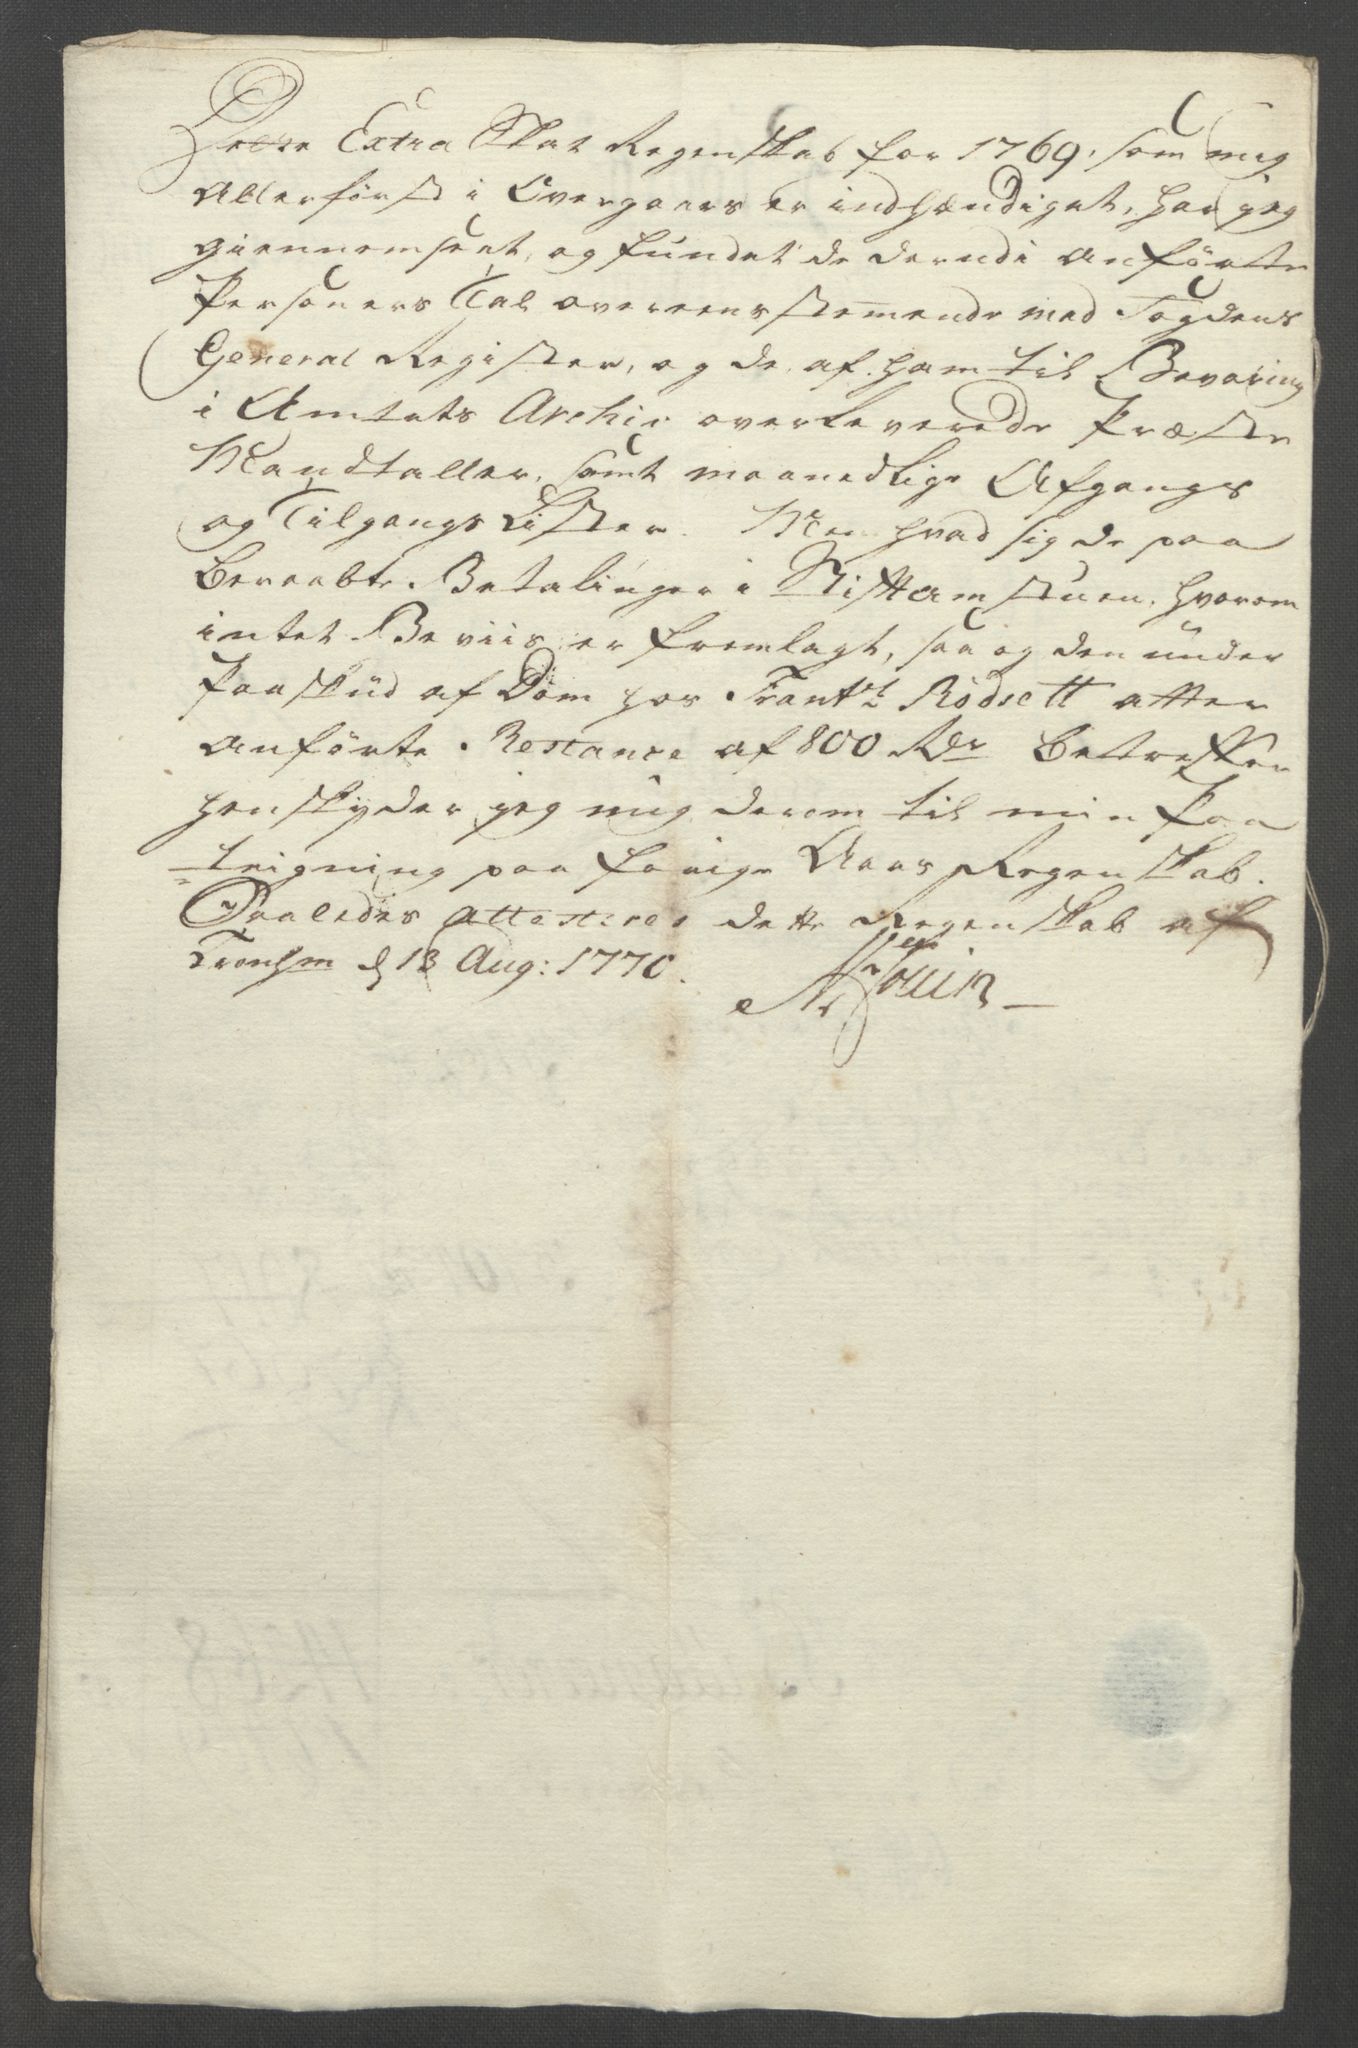 Dette Extra Skat Regenskab for 1769, som mig
Allerförst i Overgaars er indhændiget, har jeg
giennemseet, og fundet de derudi anförte
Personers Tal overeensstemende med Fogdens
General Register, og de af ham til Bevaring
i Amtets Archiv overleverede Præste
Mandtaller, samt maanedlige Afgangs
og Tilgangs Lister. Men hvad sig de paa
beraabte Betalinger i Stiftamstuen, hvorom
intet Beviis er fremlagt, saa og den under
Paaskud af Döm hos Frantz Rödsett atter
anförte Restance af 800 Rdr betreffer
henskyder jeg mig derom til min Paa
-teigning paa forige Aars Regenskab.
Saaledes attesteres dette Regenskab af
Tronhm d 13 Aug: 1770.